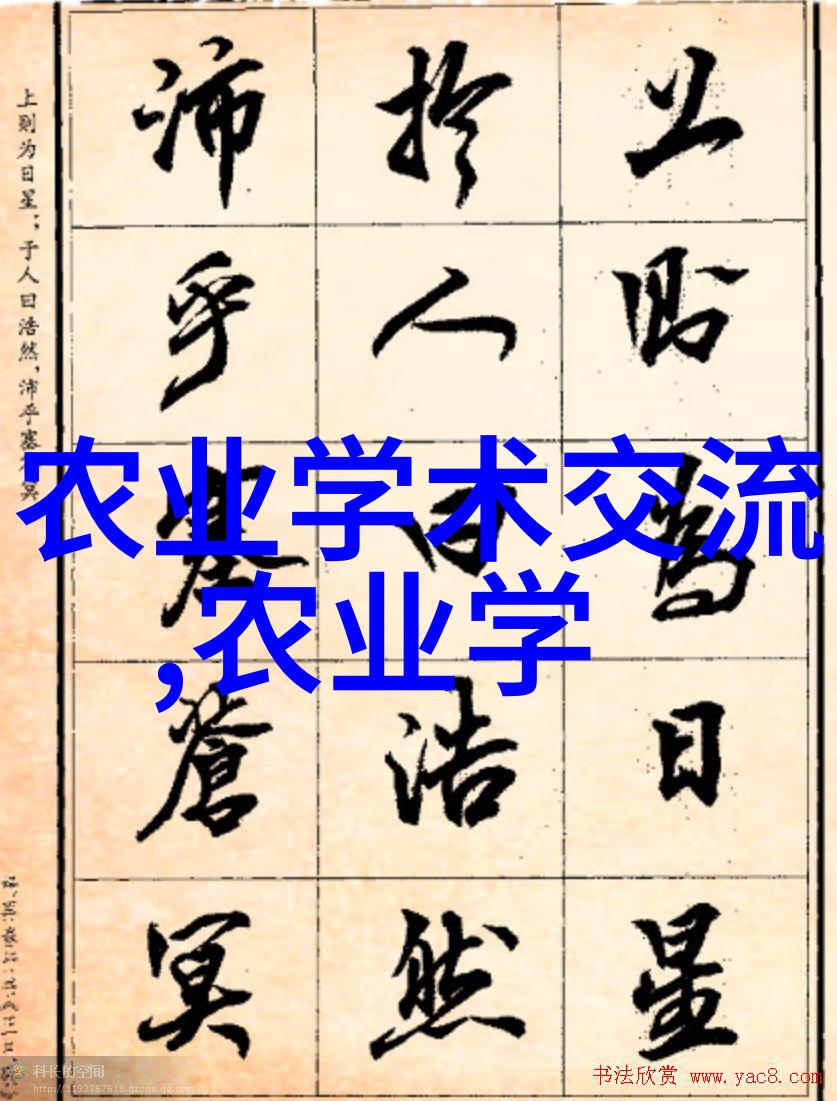 上则为日星；于人曰浩然，沛乎塞
冥
上則為日星
於人曰浩然
沛乎塞蒼冥
农业学术交流
,农业学
科长的空间
http://1193767618.qzone.qq.com
书法欣赏 www.yac8.com